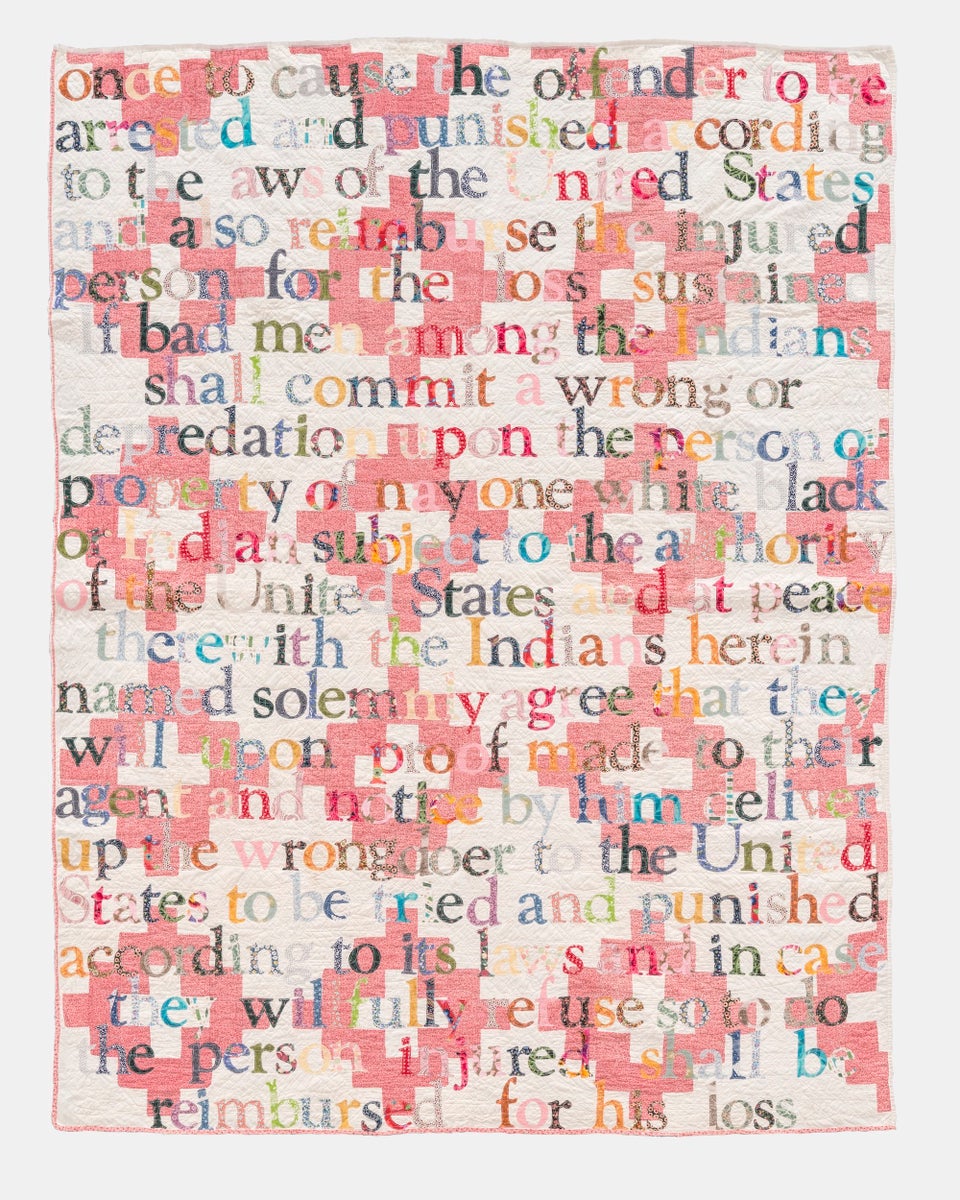 once to cause the offender to be
arrested and punished according
to the laws of the United States
and also reimburse the injured
person for the loss sustained
If bad men among the Indians
shall commit a wrong or
depredation upon the person or
property of nay one white black
or Indian subject to the authority
of the United States and at peace
therewith the Indians herein
named solemnly agree that they
will upon proof made to their
agent and notice by him deliver
up the wrongdoer to the United
States to be tried and punished
according to its laws and in case
they wilfully refuse so to do
the person injured shall be
reimbursed for his loss